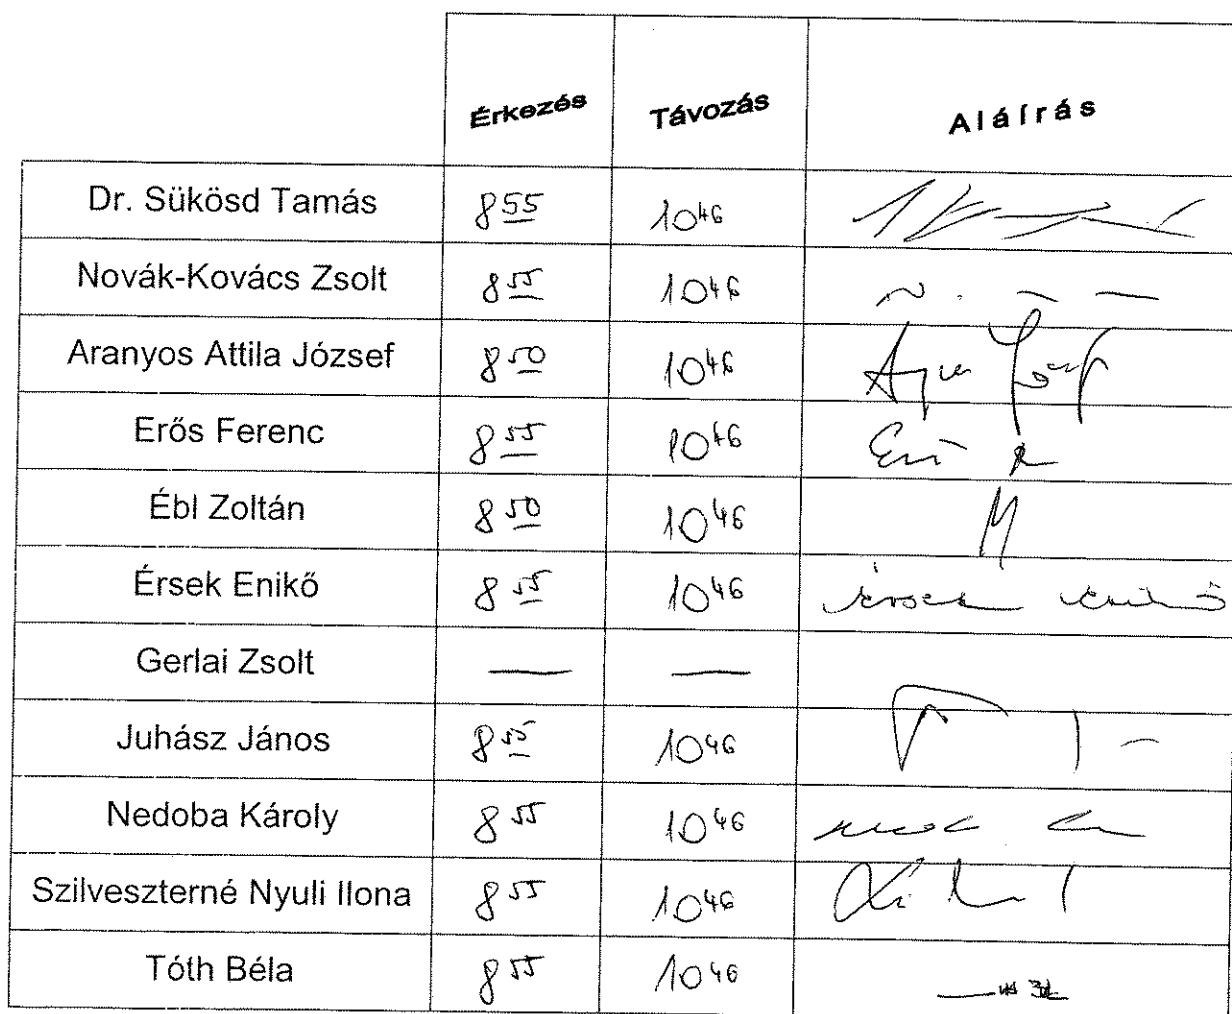 Érkezés Távozás Aláírás
Dr. Sükösd Tamás 8 55 10 46
Novák-Kovács Zsolt 8 55 10 46
Aranyos Attila József 8 50 10 46
Erős Ferenc 8 55 10 46
Ébl Zoltán 8 50 10 46
Érsek Enikő 8 55 10 46 Érsek Enikő
Gerlai Zsolt — —
Juhász János 8 55 10 46
Nedoba Károly 8 55 10 46
Szilveszterné Nyuli Ilona 8 55 10 46
Tóth Béla 8 55 10 46